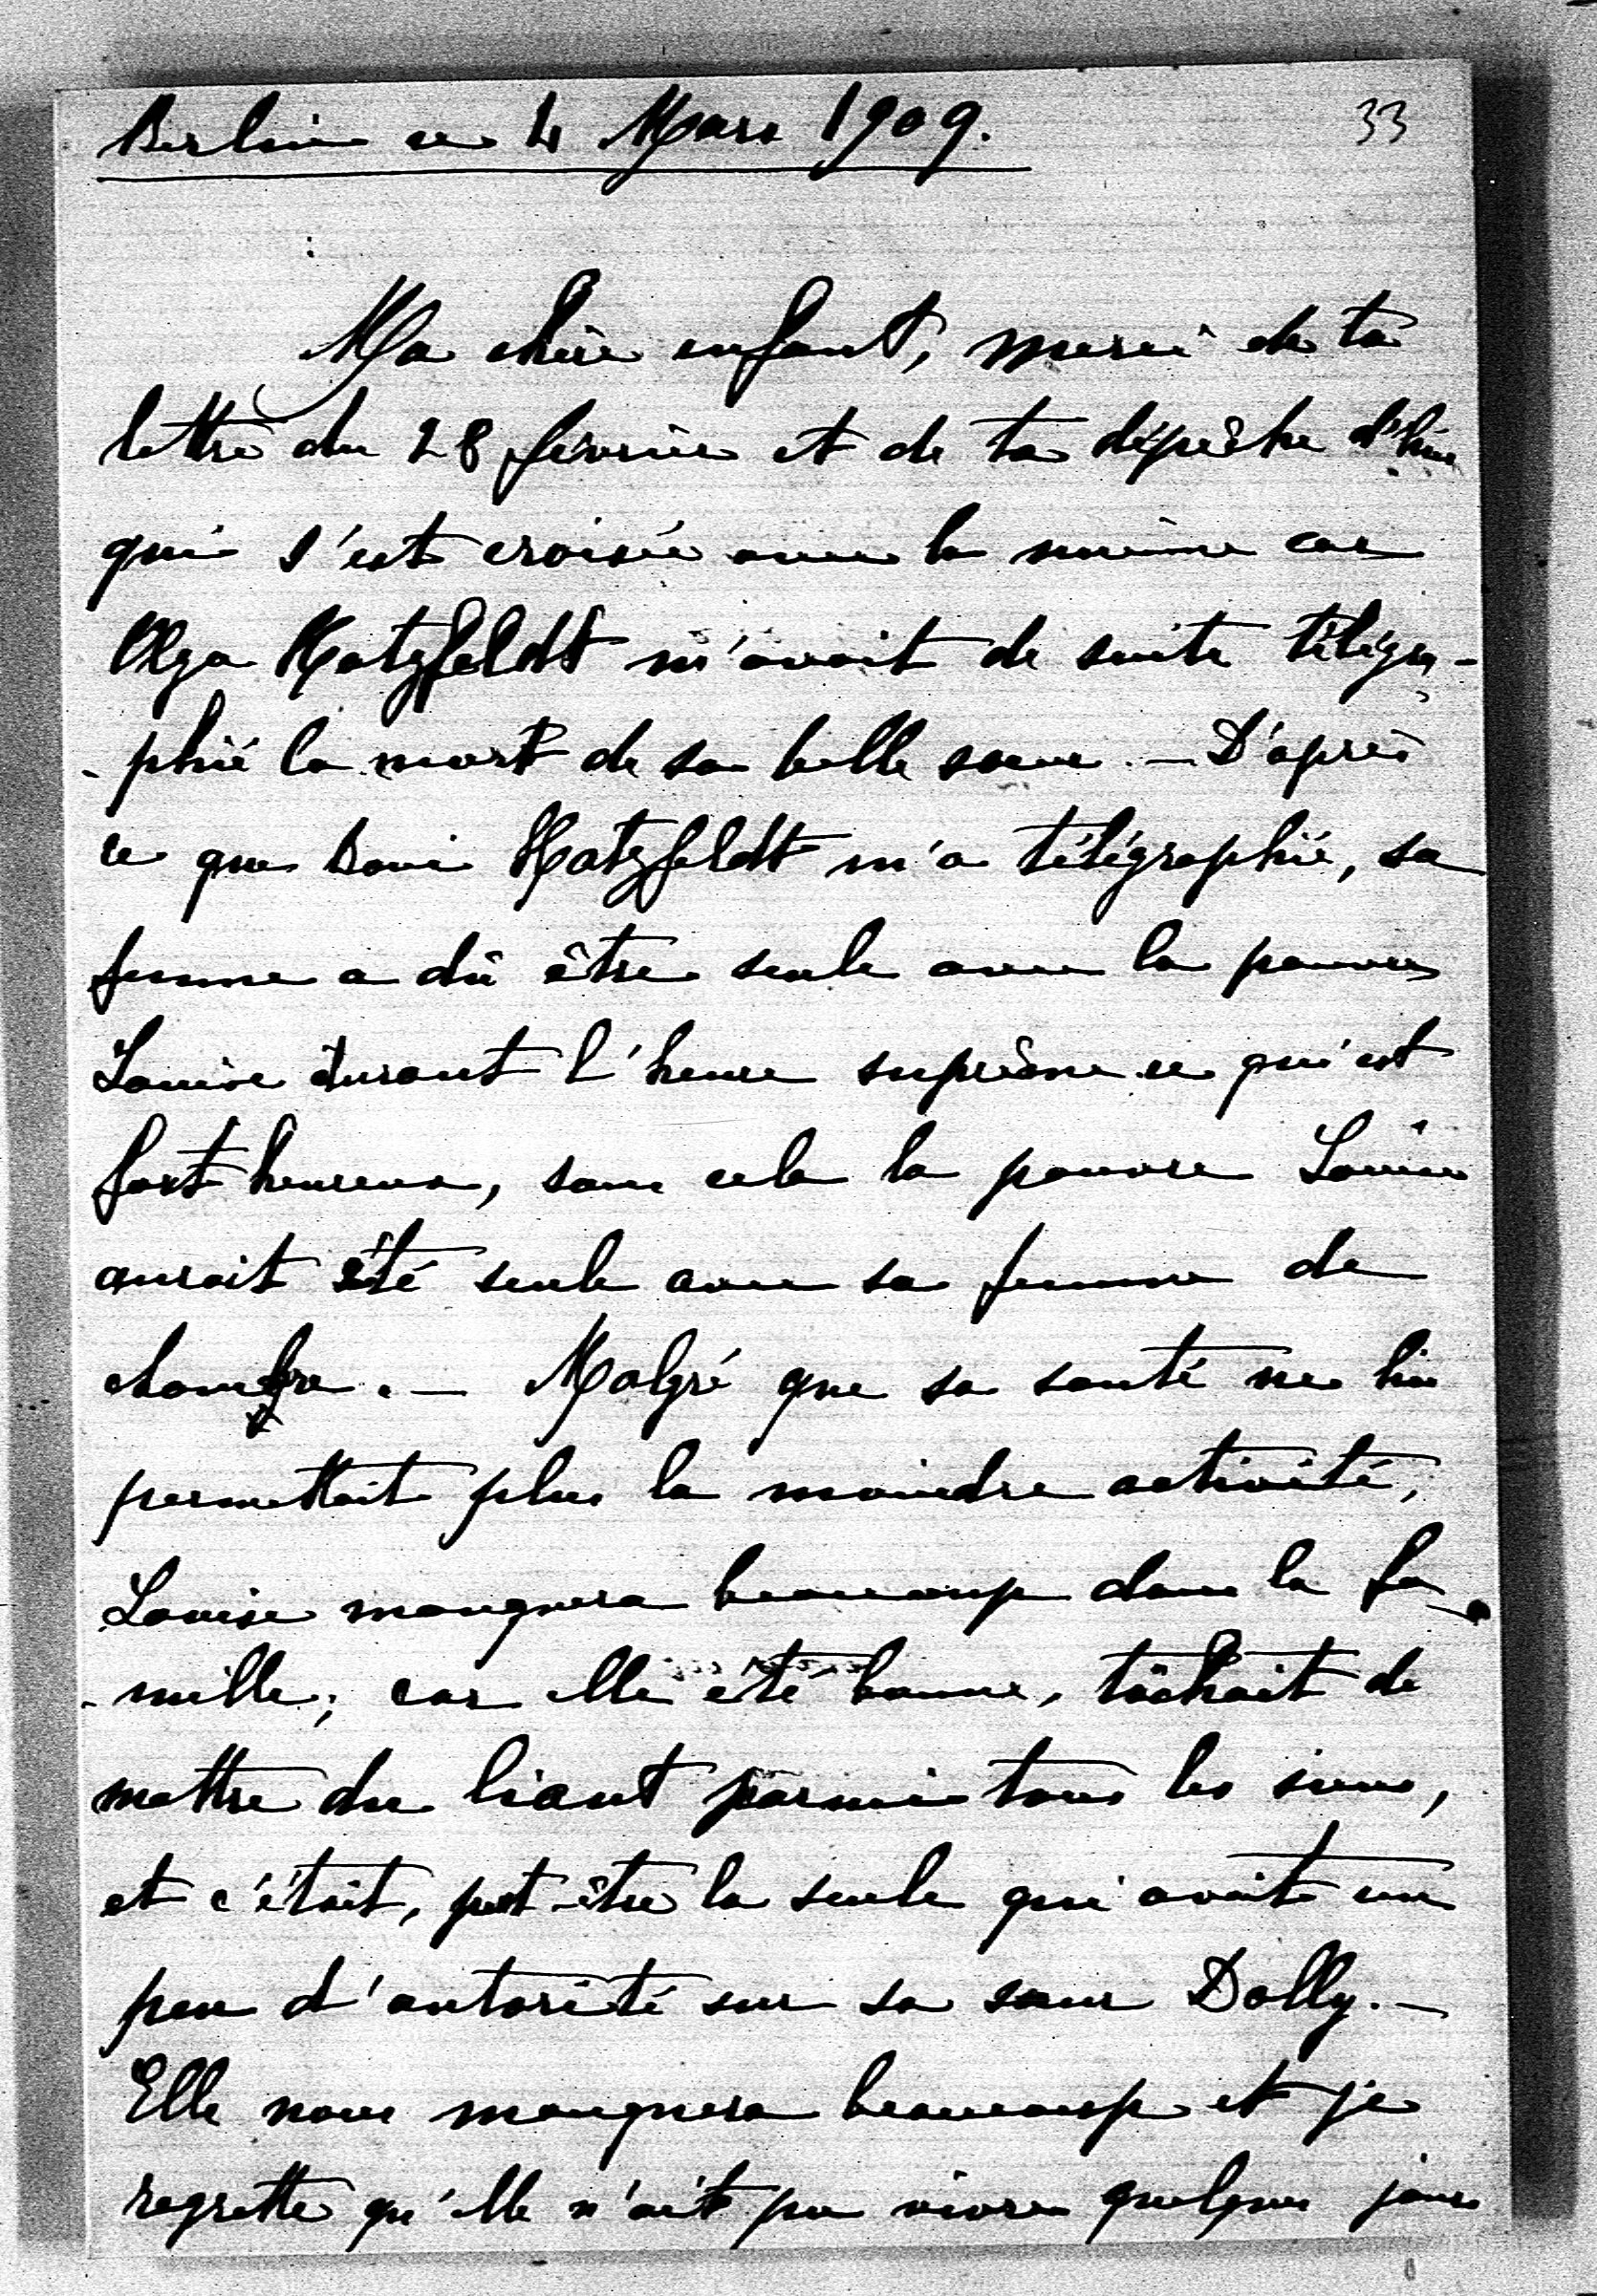 Berlin ce 4 Mars 1909.
33
Ma chère enfant, merci de ta
lettre du 28 février et de ta dépêche d'hier
qui s'est croisée avec la mienne car
Olga Hatzfeldt m'avait de suite télégra-
-phié la mort de sa belle soeur. — D'après
ce que Hatzfeldt m'a télégraphié, sa
femme a dû être seule avec la pauvre
Louise durant l'heure suprême ce qui est
fort heureux, sans cela la pauvre Louise
aurait été seule avec sa femme de
chambre. — Malgré que sa santé ne lui
permettait plus la moindre activité,
Louise manquera beaucoup dans la fa-
-mille; car elle été bonne, tâchait de
mettre du liant parmi tous les siens,
et c'était, peut-être la seule qui avait un
peu d'autorité sur sa soeur Dolly. —
Elle nous manquera beaucoup et je
regrette qu'elle n'ait pu vivre quelques jours